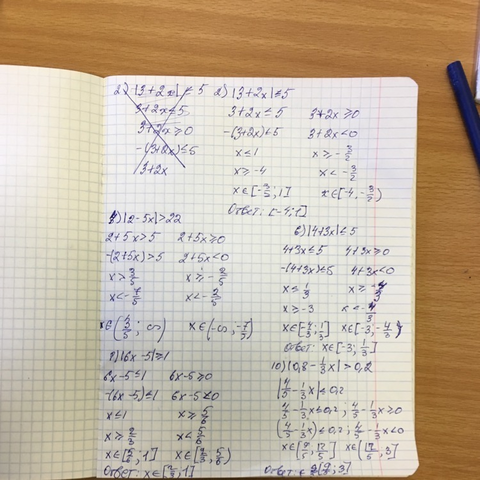 2) |3+2x| ≤ 5
3+2x≤5
3+2x≥0
-(3+2x)≤5
3+2x
2) |3+2x|≤5
3+2x≤5 3+2x≥0
-(3+2x)≤5 3+2x<0
x≤1 x≥-3/2
x≥-4 x<-3/2
x∈[-3/2;1] x∈[-4,-3/2)
Ответ: [-4;1]
|2-5x|>22
2+5x>5 2+5x≥0
-(2+5x)>5 2+5x<0
x>3/5 x≥-2/5
x<-7/5 x<-2/5
x∈(3/5; ∞) x∈(-∞,-7/5)
6) |4+3x|≤5
4+3x≤5 4+3x≥0
-(4+3x)≤5 4+3x<0
x≤1/3 x≥-4/3
x≥-3 x<-4/3
x∈[-4/3;1/3] x∈[-3;-4/3)
Ответ: x∈[-3;1/3]
|6x-5|≤1
6x-5≤1 6x-5≥0
-(6x-5)≤1 6x-5<0
x≤1 x≥5/6
x≥2/3 x<5/6
x∈[5/6;1] x∈[2/3,5/6)
Ответ: x∈[2/3;1]
10) |0,8-1/3x|>0,2
|4/5-1/3x|≤0,2
4/5-1/3x≤0,2; 4/5-1/3x≥0
(4/5-1/3x)≤0,2; 4/5-1/3x<0
x∈[9/5,12/5] x∈(12/5,3]
Ответ